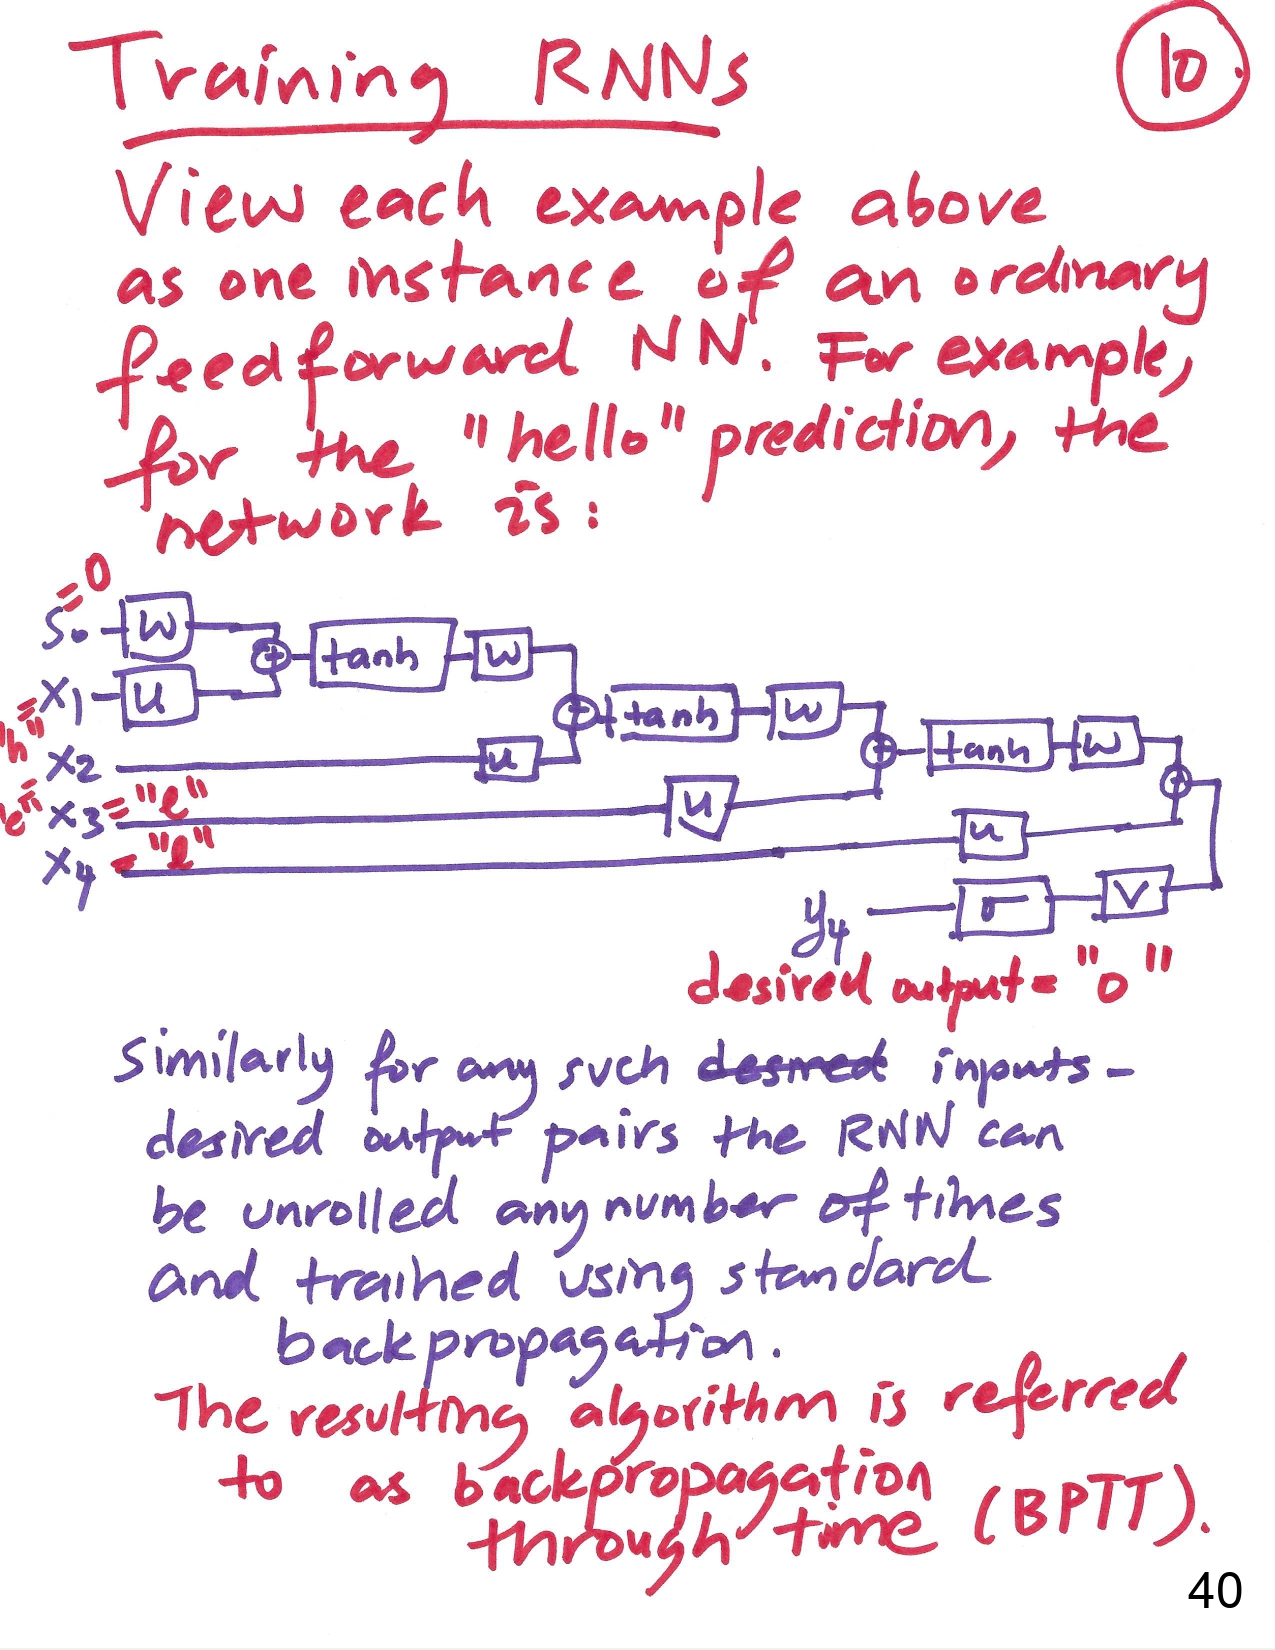 Training RNNs
10.
View each example above
as one instance of an ordinary
feedforward NN. For example,
for the "hello" prediction, the
network is:
= 0
S₀ W
+ tanh W
= X₁ U
"h"
+ tanh W
X₂ U
= "e"
+ tanh W
X₃ = "e" U
+
X₄ = "l" U
y₄ σ V
desired output = "o"
Similarly for any such desired inputs-
desired output pairs the RNN can
be unrolled any number of times
and trained using standard
backpropagation.
The resulting algorithm is referred
to as backpropagation
through time (BPTT).
40